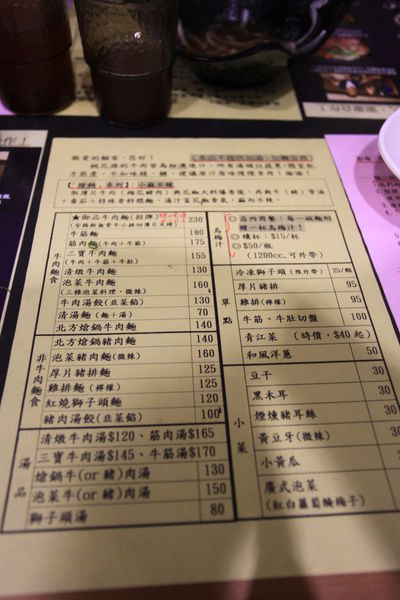 親愛的顧客,您好!
【燴鍋 系列】小麻不辣
牛肉麵食
★御品牛肉麵(招牌) 230
牛筋麵 180
筋肉麵(牛肉+牛筋) 175
三寶牛肉麵 155
(牛肉+牛筋+牛肚)
清燉牛肉麵 130
泡菜牛肉麵 160
(三種泡菜料理、微辣)
牛肉湯餃(韭菜餡) 130
清湯麵(麵+湯) 70
北方熗鍋牛肉麵 140
非牛肉麵食
北方熗鍋豬肉麵 140
泡菜豬肉麵(微辣) 160
厚片豬排麵 125
雞排麵(檸檬) 125
紅燒獅子頭麵 120
豬肉湯餃(韭菜餡) 100
湯品
清燉牛肉湯$120、筋肉湯$165
三寶牛肉湯$145、牛筋湯$170
熗鍋牛(or 豬)肉湯 130
泡菜牛(or 豬)肉湯 150
獅子頭湯 80
烏梅汁
◎店內用餐!每一碗麵附
贈一杯烏梅汁!
◎續杯:$15/杯
◎$50/瓶
(1200cc,可外帶)
單點
冷凍獅子頭(限外帶) 25/顆
厚片豬排 95
雞排(檸檬) 95
牛筋、牛肚切盤 100
青江菜 (時價,$40起)
和風洋蔥 50
小菜
豆干 30
黑木耳 30
煙燻豬耳絲 50
黃豆芽(微辣) 30
小黃瓜 30
廣式泡菜 50
(紅白蘿蔔醃梅子)